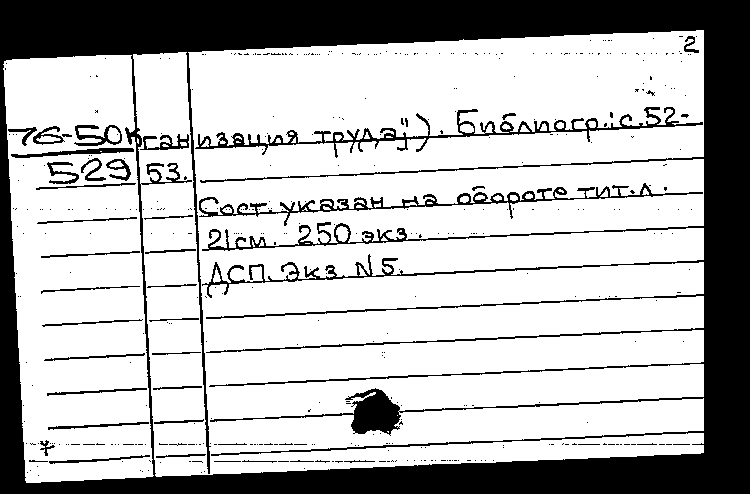 2
76-50к ганизация труда"]). Библиогр.: с.52-
529 53.
Сост. указан на обороте тит.л.
21см. 250 экз.
ДСП. Экз. N5.